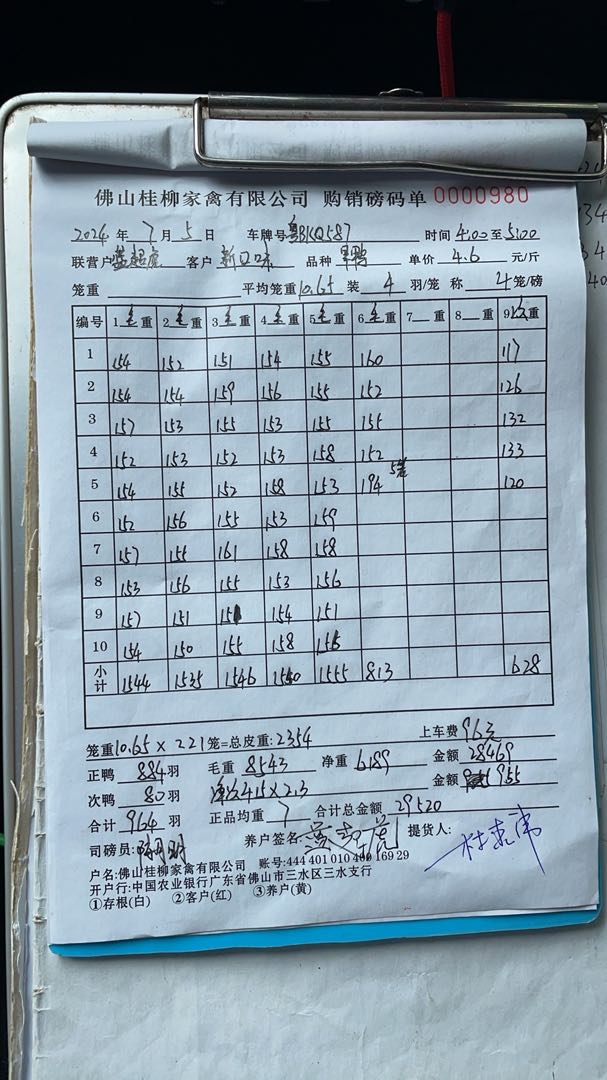 佛山桂柳家禽有限公司 购销磅码单 0000980
2024 年 7 月 5 日 车牌号 粤BKQ587 时间 4:00 至 5:00
联营户 客户 新口味 品种 单价 4.6 元/斤
笼重 平均笼重 10.65 装 4 羽/笼 称 4 笼/磅
编号 1 毛 重 2 毛 重 3 毛 重 4 毛 重 5 毛 重 6 毛 重 7 重 8 重 9 次 重
1 154 152 151 154 155 160 117
2 154 154 159 156 155 152 126
3 157 153 155 153 155 155 132
4 152 153 152 153 158 152 133
5 154 155 152 158 153 194 5笼 120
6 152 156 155 153 159
7 157 155 161 158 158
8 153 156 155 153 156
9 157 151 151 154 151
10 154 150 155 158 155
小计 1544 1535 1546 1550 1555 813 628
笼重 10.65 × 221 笼=总皮重: 2354 上车费 96元
正鸭 884 羽 毛重 8543 净重 6189 金额 28469
次鸭 80 羽 净次415×2.3 金额 955
合计 964 羽 正品均重 7 合计总金额 29520
司磅员: 养户签名: 提货人:
户名:佛山桂柳家禽有限公司 账号:444 401 010 400 169 29
开户行:中国农业银行广东省佛山市三水区三水支行
①存根(白) ②客户(红) ③养户(黄)